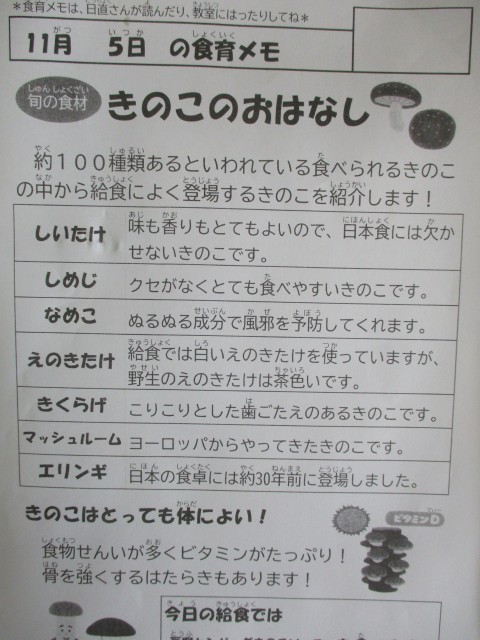 ＊食育メモは、日直さんが読んだり、教室にはったりしてね＊
11月 5日 の食育メモ
旬の食材 きのこのおはなし
約１００種類あるといわれている食べられるきのこ
の中から給食によく登場するきのこを紹介します！
しいたけ 味も香りもとてもよいので、日本食には欠か
せないきのこです。
しめじ クセがなくとても食べやすいきのこです。
なめこ ぬるぬる成分で風邪を予防してくれます。
えのきたけ 給食では白いえのきたけを使っていますが、
野生のえのきたけは茶色いです。
きくらげ こりこりとした歯ごたえのあるきのこです。
マッシュルーム ヨーロッパからやってきたきのこです。
エリンギ 日本の食卓には約30年前に登場しました。
きのこはとっても体によい！
ビタミンD
食物せんいが多くビタミンがたっぷり！
骨を強くするはたらきもあります！
今日の給食では